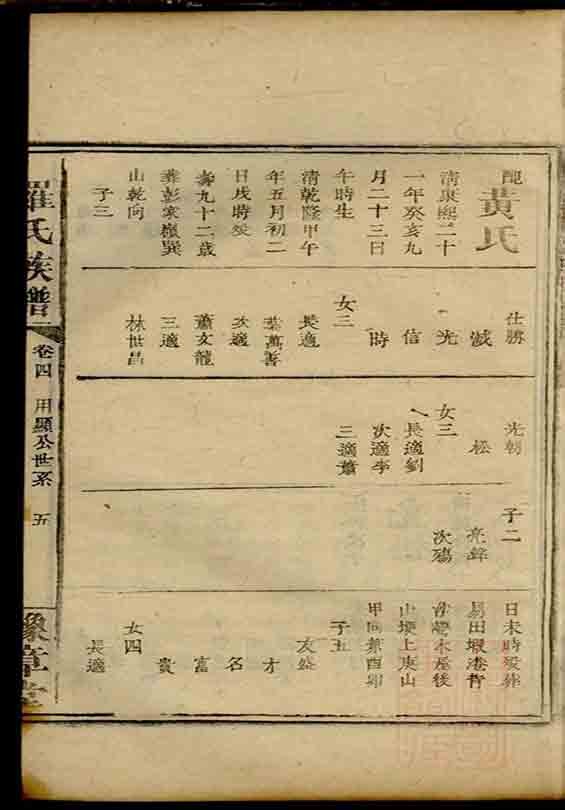 配黃氏
清康熙二十
一年癸亥九
月二十三日
午時生
清乾隆甲午
年五月初二
日戌時歿
壽九十二歲
葬彭家嶺巽
山乾向
子三
仕勝
斌
光
信
時
女三
長適
葉萬善
次適
蕭文龍
三適
林世昌
光朝
松
女三
長適劉
次適李
三適蕭
子二
亮鋒
次殤
日未時歿葬
易田塅港背
灣木屋後
山埂上庚山
甲向兼酉卯
子五
友盛
才
名
富
貴
女四
長適
羅氏族譜
卷四
用顯公世系
五
豫章堂